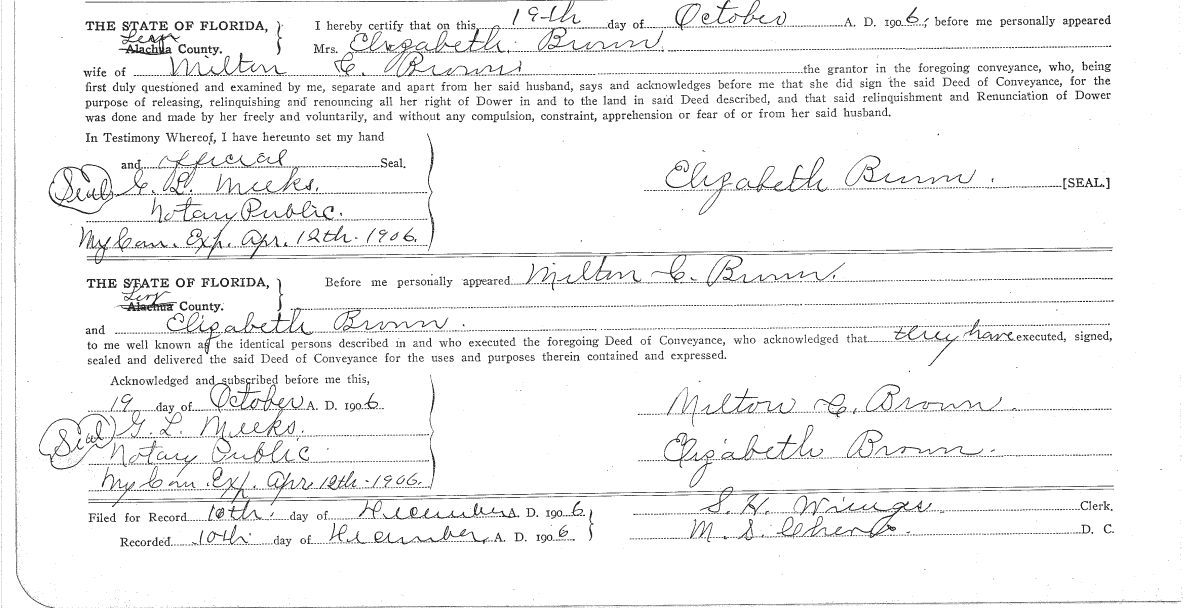 THE STATE OF FLORIDA, } I hereby certify that on this, 19th day of October A. D. 1906, before me personally appeared
Levy
Alachua County. Mrs. Elizabeth Brown
wife of Milton C. Brown the grantor in the foregoing conveyance, who, being
first duly questioned and examined by me, separate and apart from her said husband, says and acknowledges before me that she did sign the said Deed of Conveyance, for the
purpose of releasing, relinquishing and renouncing all her right of Dower in and to the land in said Deed described, and that said relinquishment and Renunciation of Dower
was done and made by her freely and voluntarily, and without any compulsion, constraint, apprehension or fear of or from her said husband.
In Testimony Whereof, I have hereunto set my hand
and official Seal.
(Seal) G. L. Meeks.
Elizabeth Brown. [SEAL.]
Notary Public.
My Com. Exp. Apr. 12th. 1906.
THE STATE OF FLORIDA, } Before me personally appeared Milton C. Brown.
Levy
Alachua County.
and Elizabeth Brown.
to me well known as the identical persons described in and who executed the foregoing Deed of Conveyance, who acknowledged that they have executed, signed,
sealed and delivered the said Deed of Conveyance for the uses and purposes therein contained and expressed.
Acknowledged and subscribed before me this,
19 day of October A. D. 1906
Milton C. Brown.
(Seal) G. L. Meeks.
Notary Public
Elizabeth Brown.
My Com. Exp. Apr. 12th - 1906.
Filed for Record 10th. day of December A. D. 1906 } S. H. Wienges Clerk.
Recorded 10th. day of December, A. D. 1906 M. S. D. C.